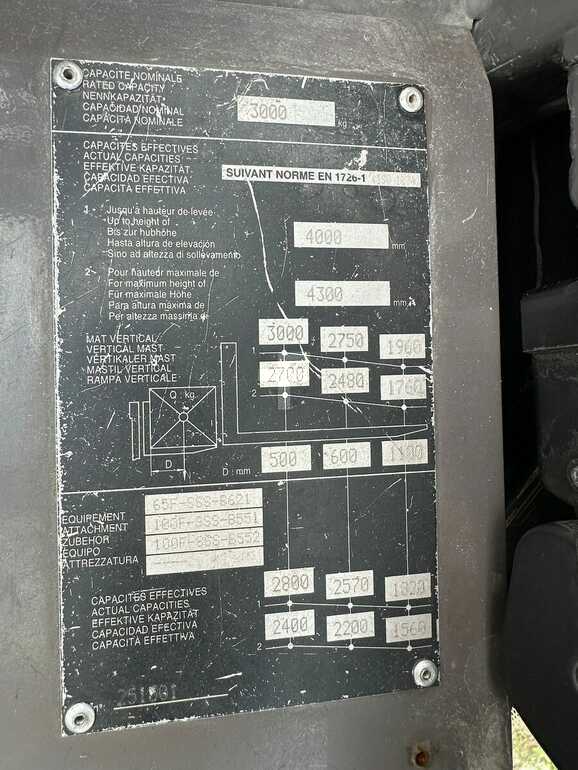 CAPACITE NOMINALE
RATED CAPACITY
NENNKAPAZITÄT
CAPACIDAD NOMINAL
CAPACITÀ NOMINALE
3000 kg
CAPACITES EFFECTIVES
ACTUAL CAPACITIES
EFFEKTIVE KAPAZITÄT
CAPACIDAD EFECTIVA
CAPACITÀ EFFETTIVA
SUIVANT NORME EN 1726-1
1 - Jusqu'à hauteur de levée
Up to height of
Bis zur hubhöhe
Hasta altura de elevación
Sino ad altezza di sollevamento
4000 mm
2 - Pour hauteur maximale de
For maximum height of
Für maximale Höhe
Para altura máxima de
Per altezza massima di
4300 mm
MAT VERTICAL
VERTICAL MAST
VERTIKALER MAST
MASTIL VERTICAL
RAMPA VERTICALE
1 3000 2750 1960
2 2700 2480 1760
Q : kg
D
D : mm 500 600 1100
EQUIPEMENT
ATTACHMENT
ZUBEHÖR
EQUIPO
ATTREZZATURA
65F-SSS-B621
100F-SSS-B551
100F-SSS-B552
CAPACITES EFFECTIVES
ACTUAL CAPACITIES
EFFEKTIVE KAPAZITÄT
CAPACIDAD EFECTIVA
CAPACITÀ EFFETTIVA
1 2800 2570 1820
2 2400 2200 1560